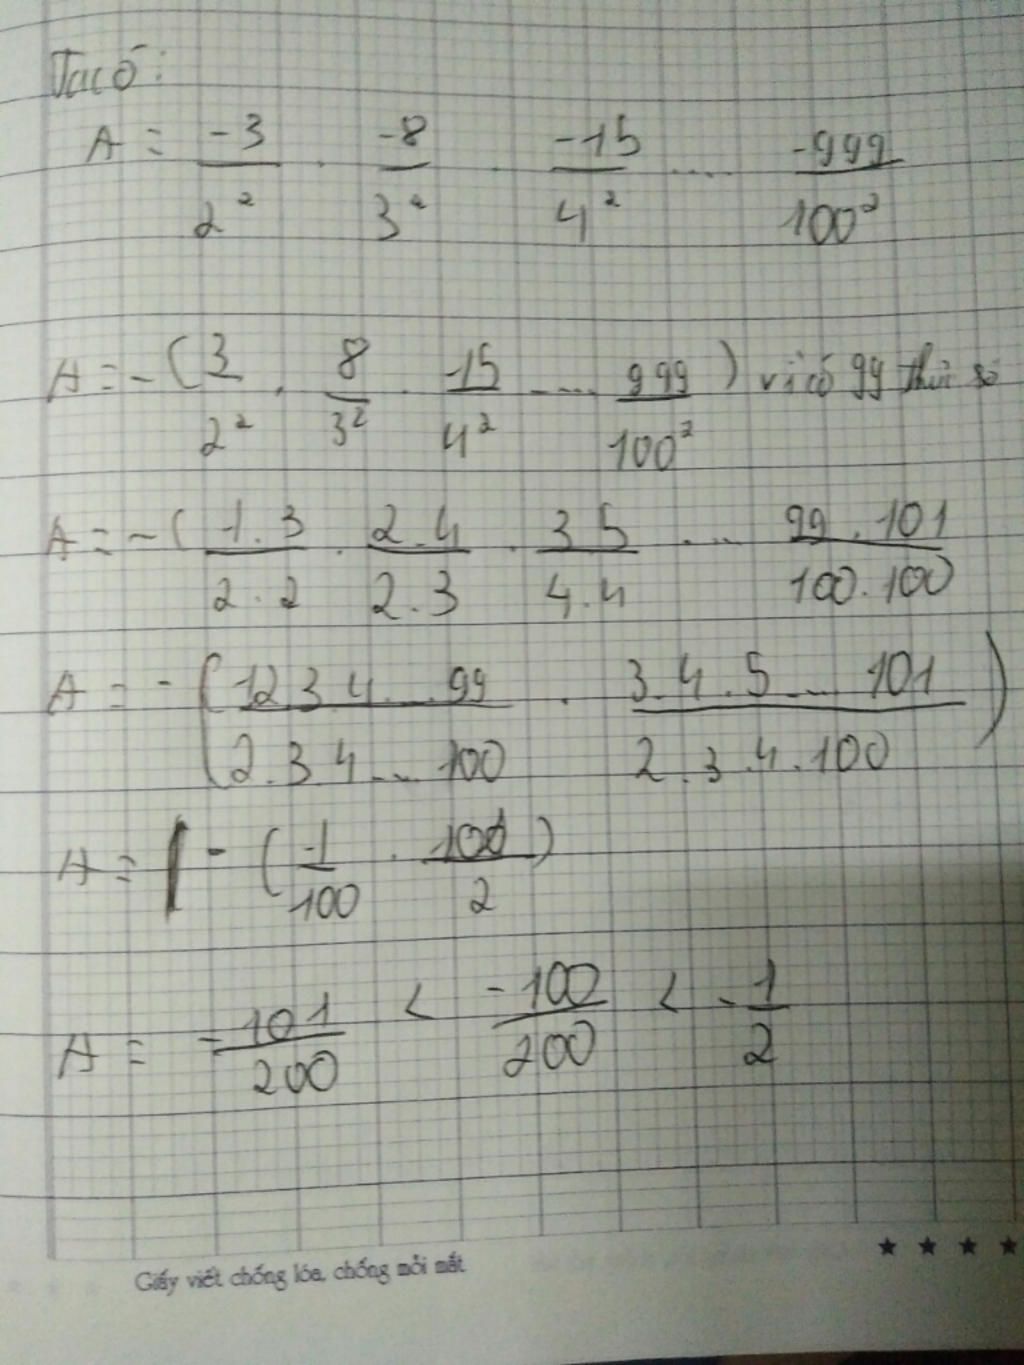 Ta có:
A = -3/2² . -8/3² . -15/4² .... -999/100²
A = -(3/2² . 8/3² . 15/4² .... 999/100²) vì có 99 thừa số
A = -(1.3/2.2 . 2.4/2.3 . 3 5/4.4 . ... 99.101/100.100
A = -(1 2 3 4...99/2.3 4...100 . 3.4.5...101/2.3.4.100)
A = - (1/100 . 101/2)
A = -101/200 < -100/200 < -1/2
Giấy viết chống lóa, chống mỏi mắt